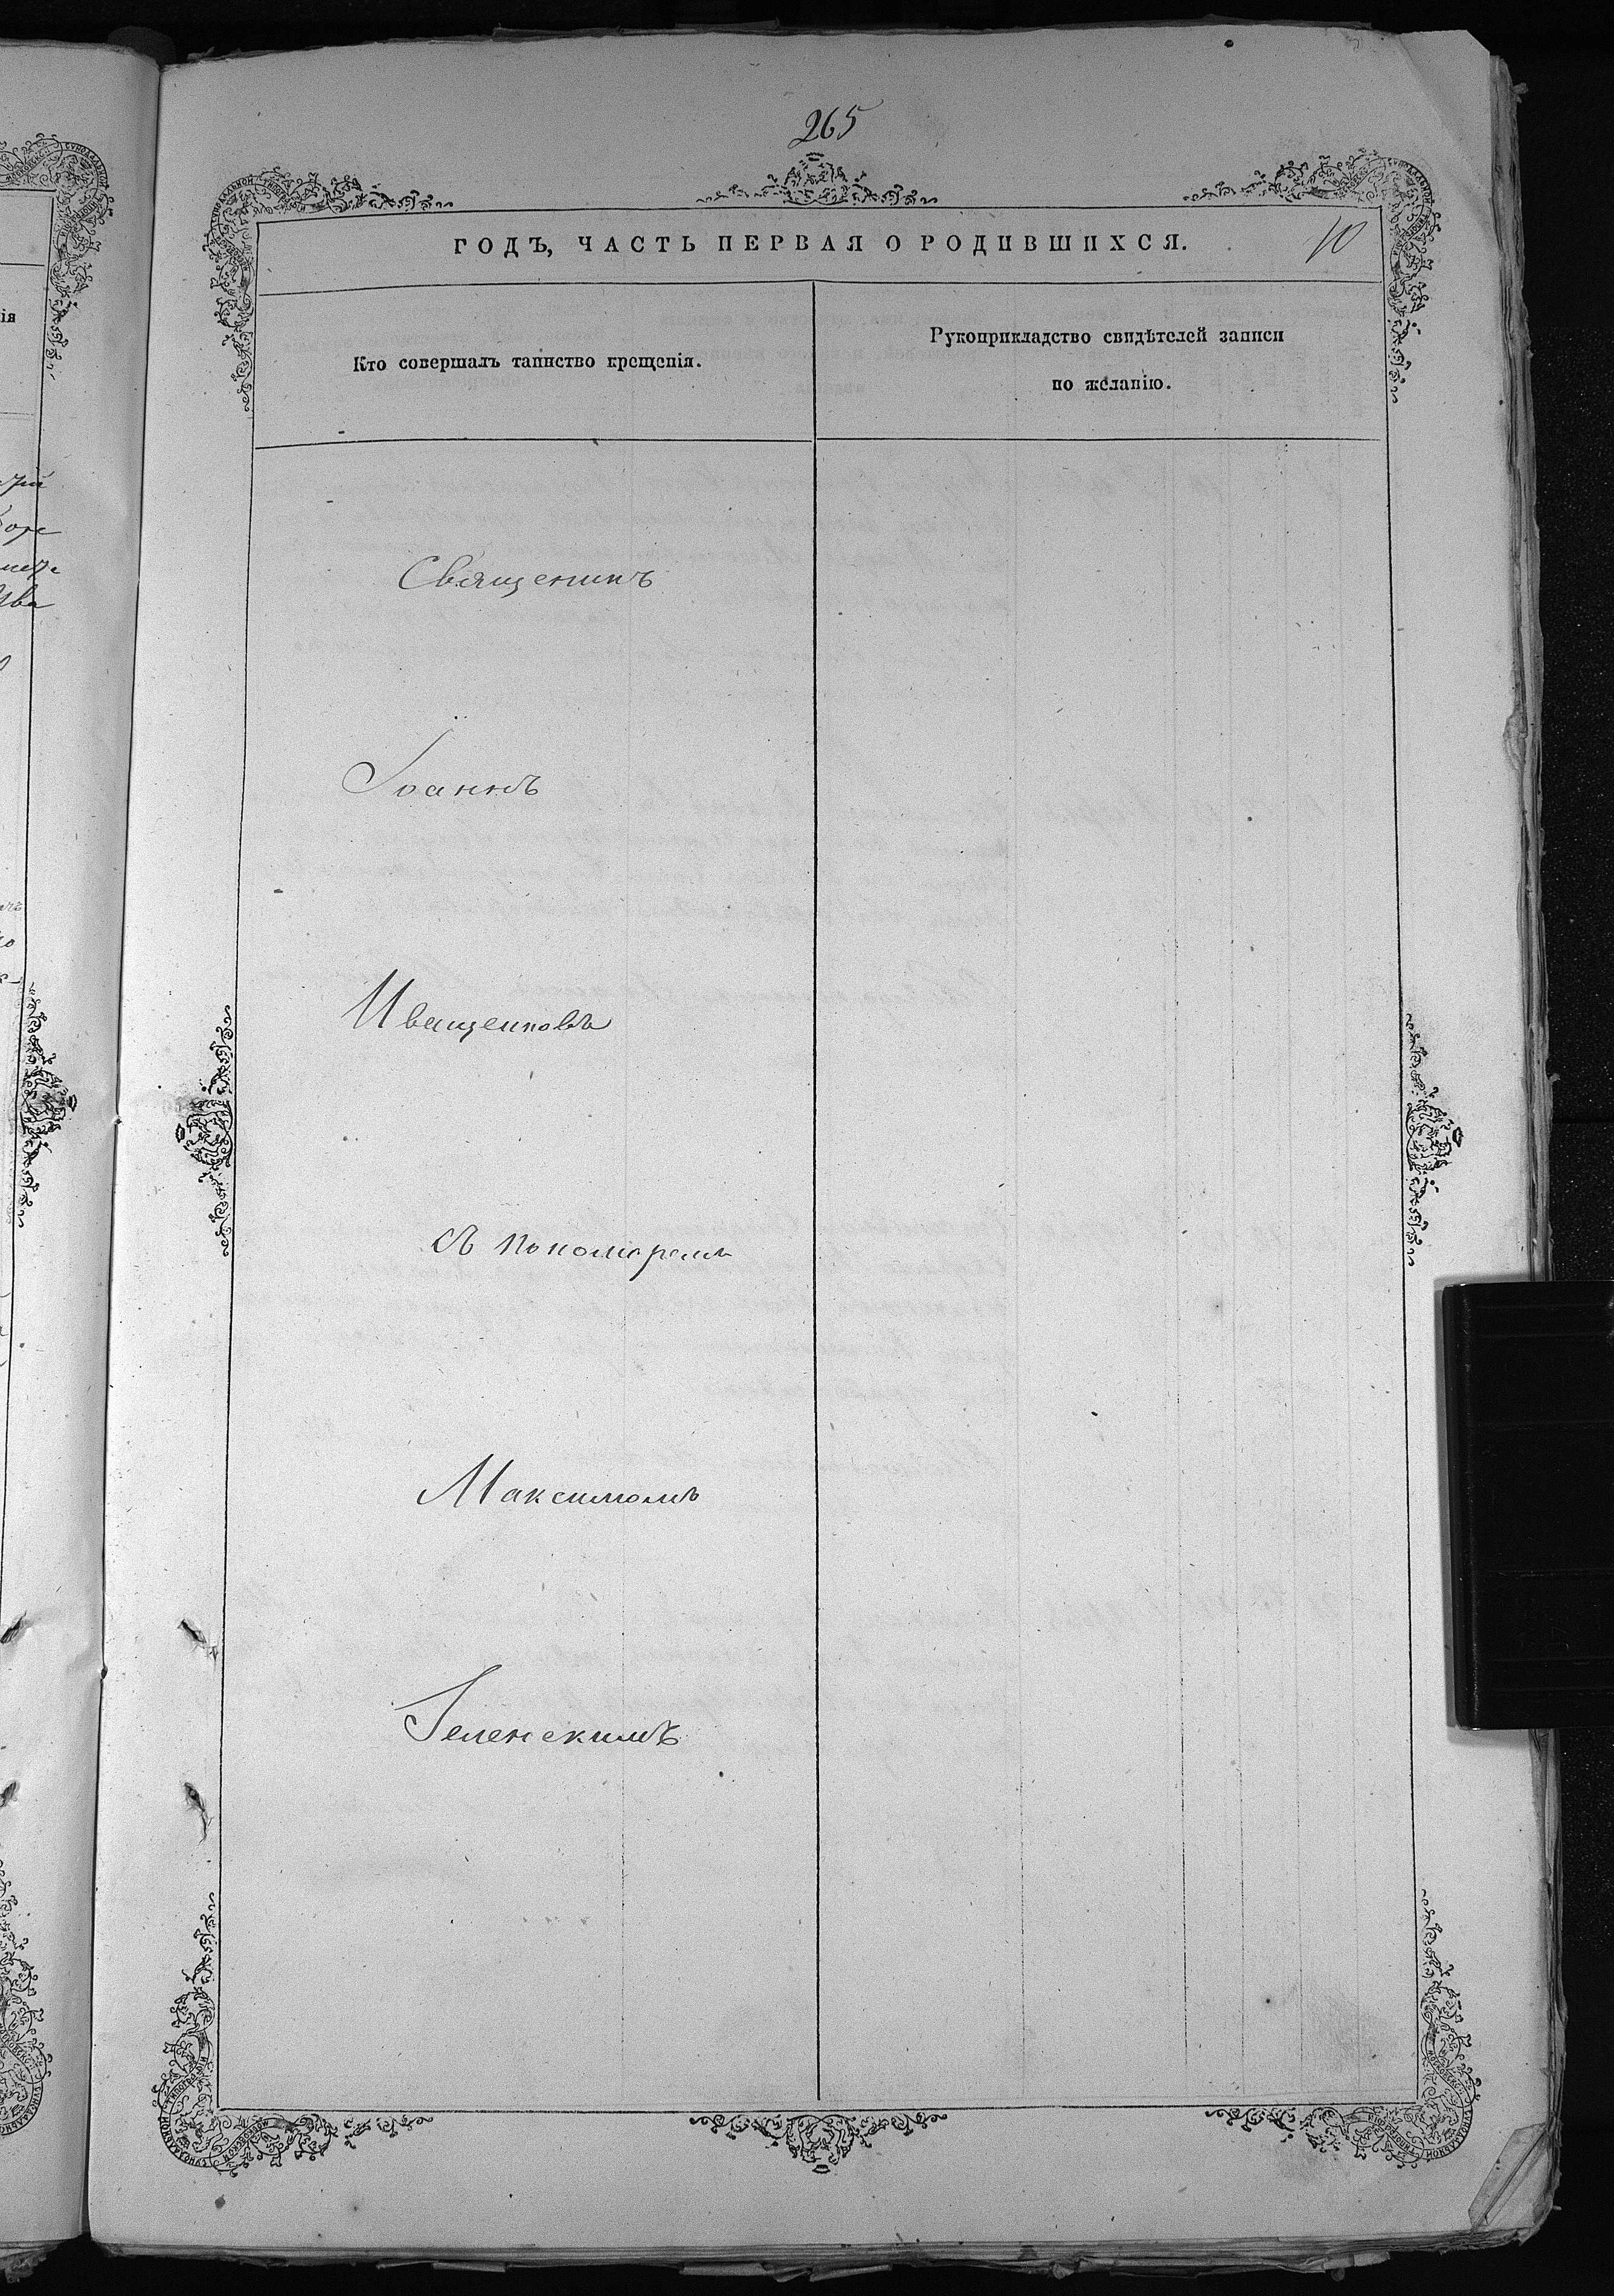 265
ГОДЪ, ЧАСТЬ ПЕРВАЯ О РОДИВШИХСЯ.
10
Кто совершалъ таинство крещенія.
Рукоприкладство свидѣтелей записи
по желанію.
Священикъ
Іоаннъ
Иващенковъ
съ пономаремъ
Максимомъ
Зеленскимъ